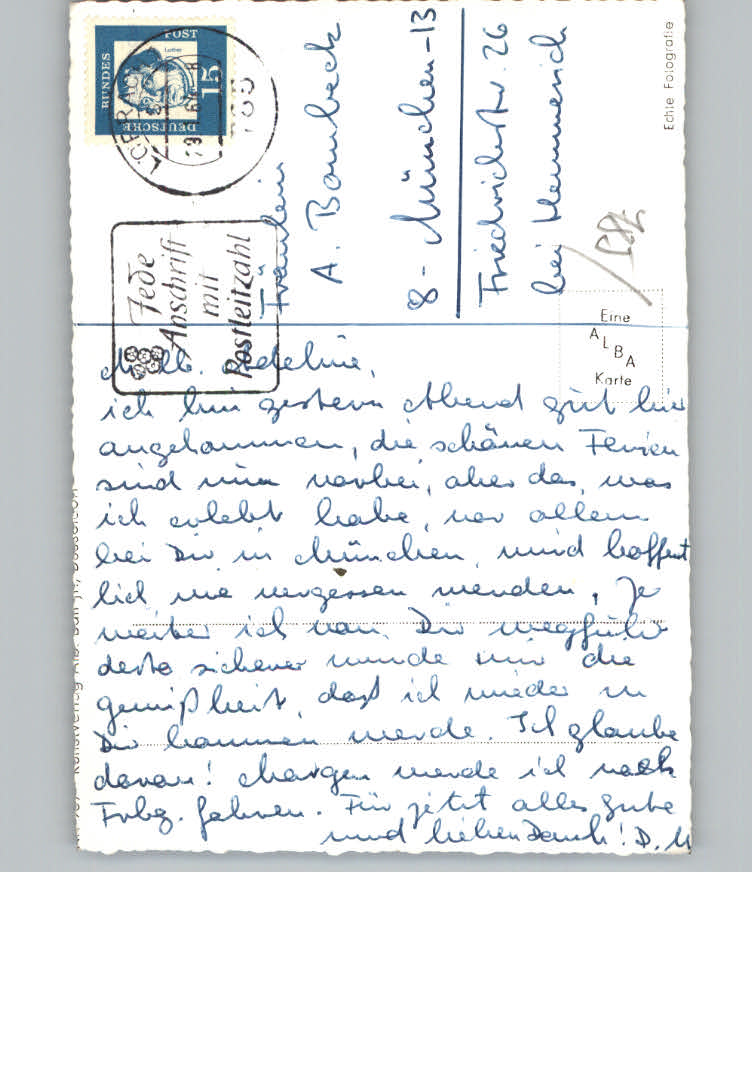 Fräulein
A. Bombeck
8 - München-13
Friedrichstr. 26
bei Hemmerich
Echte Fotografie
DEUTSCHE
BUNDES
POST
Luther
15
Jede
Anschrift
mit
Postleitzahl
Eine
ALBA
Karte
Mlb. Adeline,
ich bin gestern Abend gut hier
angekommen, die schönen Ferien
sind nun vorbei, aber das, was
ich erlebt habe, vor allem
bei Dir in München, wird hoffent
lich nie vergessen werden. Je
weiter ich von Dir wegfuhr
desto sicherer wurde mir die
Gewißheit, daß ich wieder zu
Dir kommen werde. Ich glaube
daran! Morgen werde ich nach
Frbg. fahren. Für jetzt alles Gute
und lieben Dank! D. M